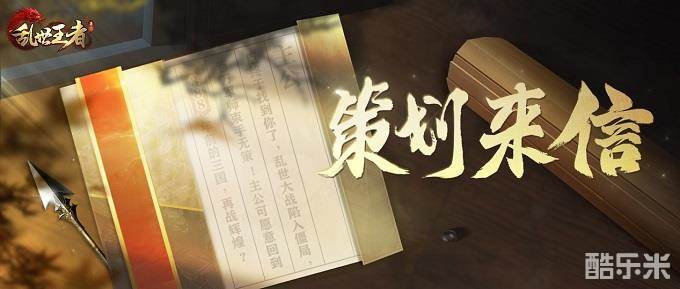 乱世王者
策划来信
找到你了，乱世大战陷入僵局，
束手无策！主公可愿意回到
8
的三国，再战辉煌？
酷乐米